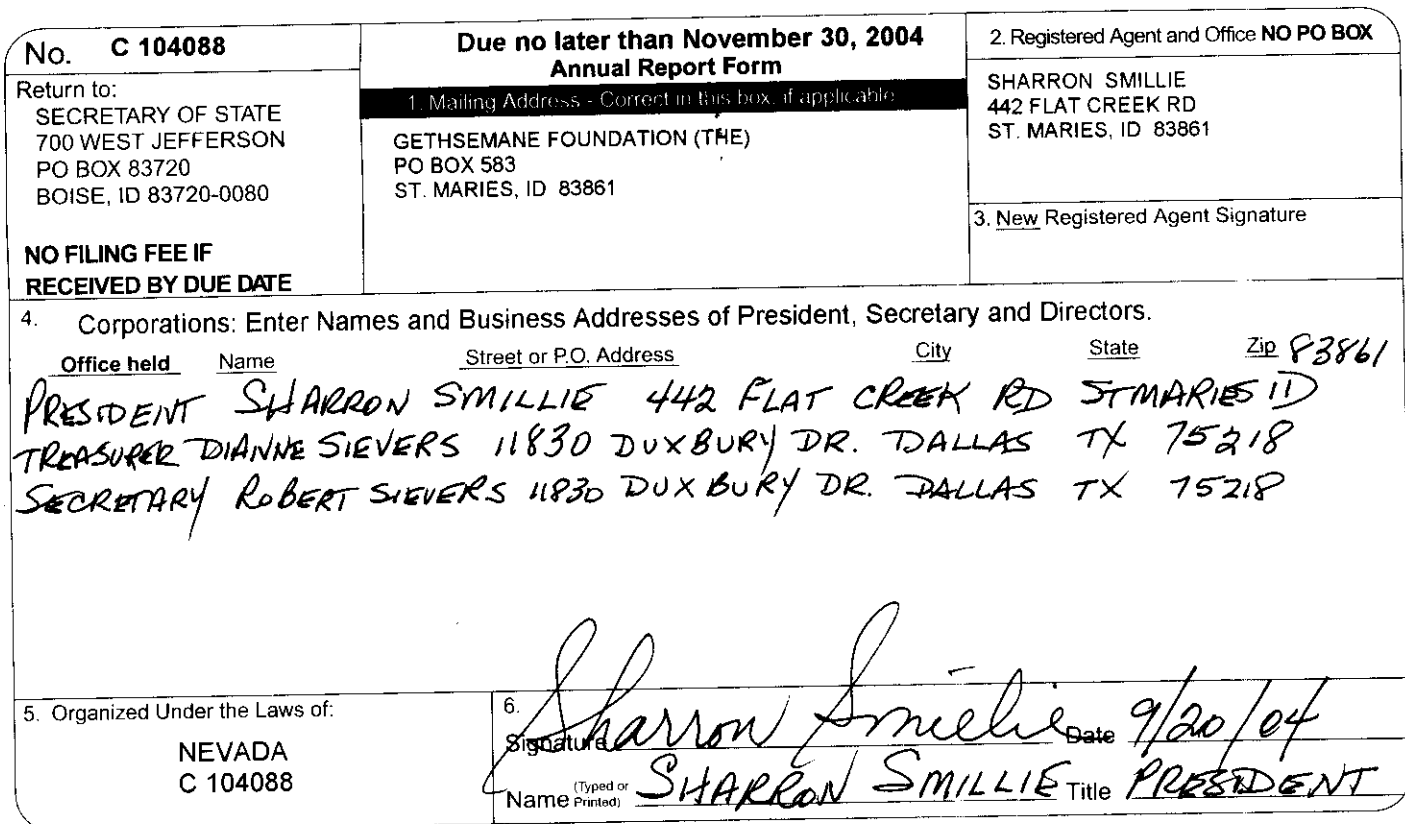 No. C 104088
Return to:
SECRETARY OF STATE
700 WEST JEFFERSON
PO BOX 83720
BOISE, ID 83720-0080
NO FILING FEE IF
RECEIVED BY DUE DATE
Due no later than November 30, 2004
Annual Report Form
1. Mailing Address - Correct in this box, if applicable
GETHSEMANE FOUNDATION (THE)
PO BOX 583
ST. MARIES, ID 83861
2. Registered Agent and Office NO PO BOX
SHARRON SMILLIE
442 FLAT CREEK RD
ST. MARIES, ID 83861
3. New Registered Agent Signature
4. Corporations: Enter Names and Business Addresses of President, Secretary and Directors.
Office held Name Street or P.O. Address City State Zip 83861
PRESIDENT SHARRON SMILLIE 442 FLAT CREEK RD ST MARIES ID
TREASURER DIANNE SIEVERS 11830 DUXBURY DR. DALLAS TX 75218
SECRETARY ROBERT SIEVERS 11830 DUXBURY DR. DALLAS TX 75218
5. Organized Under the Laws of:
NEVADA
C 104088
6.
Signature Sharron Smillie Date 9/20/04
Name (Typed or Printed) SHARRON SMILLIE Title PRESIDENT